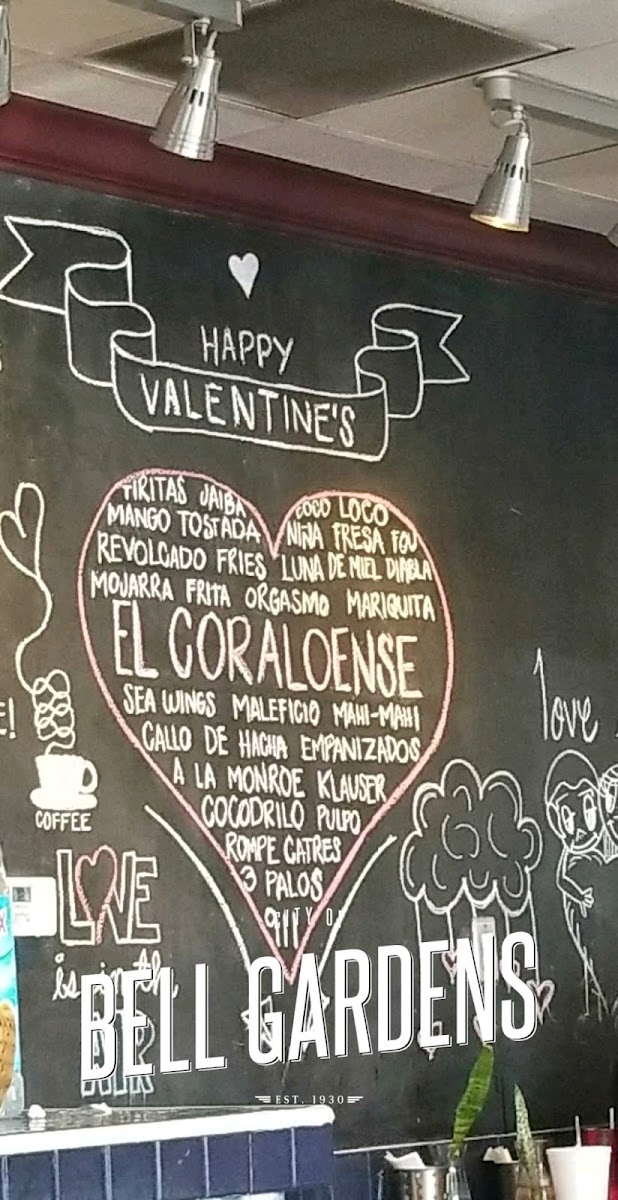 HAPPY
VALENTINE'S
TIRITAS JAIBA
COCO LOCO
MANGO TOSTADA
NIÑA FRESA FOU
REVOLCADO FRIES
LUNA DE MIEL DIABLA
MOJARRA FRITA ORGASMO MARIQUITA
EL CORALOENSE
SEA WINGS MALEFICIO MAHI-MAHI
CALLO DE HACHA EMPANIZADOS
A LA MONROE KLAUSER
COCODRILO PULPO
ROMPE CATRES
3 PALOS
love
COFFEE
LOVE
is in the
AIR
CITY OF
BELL GARDENS
EST. 1930